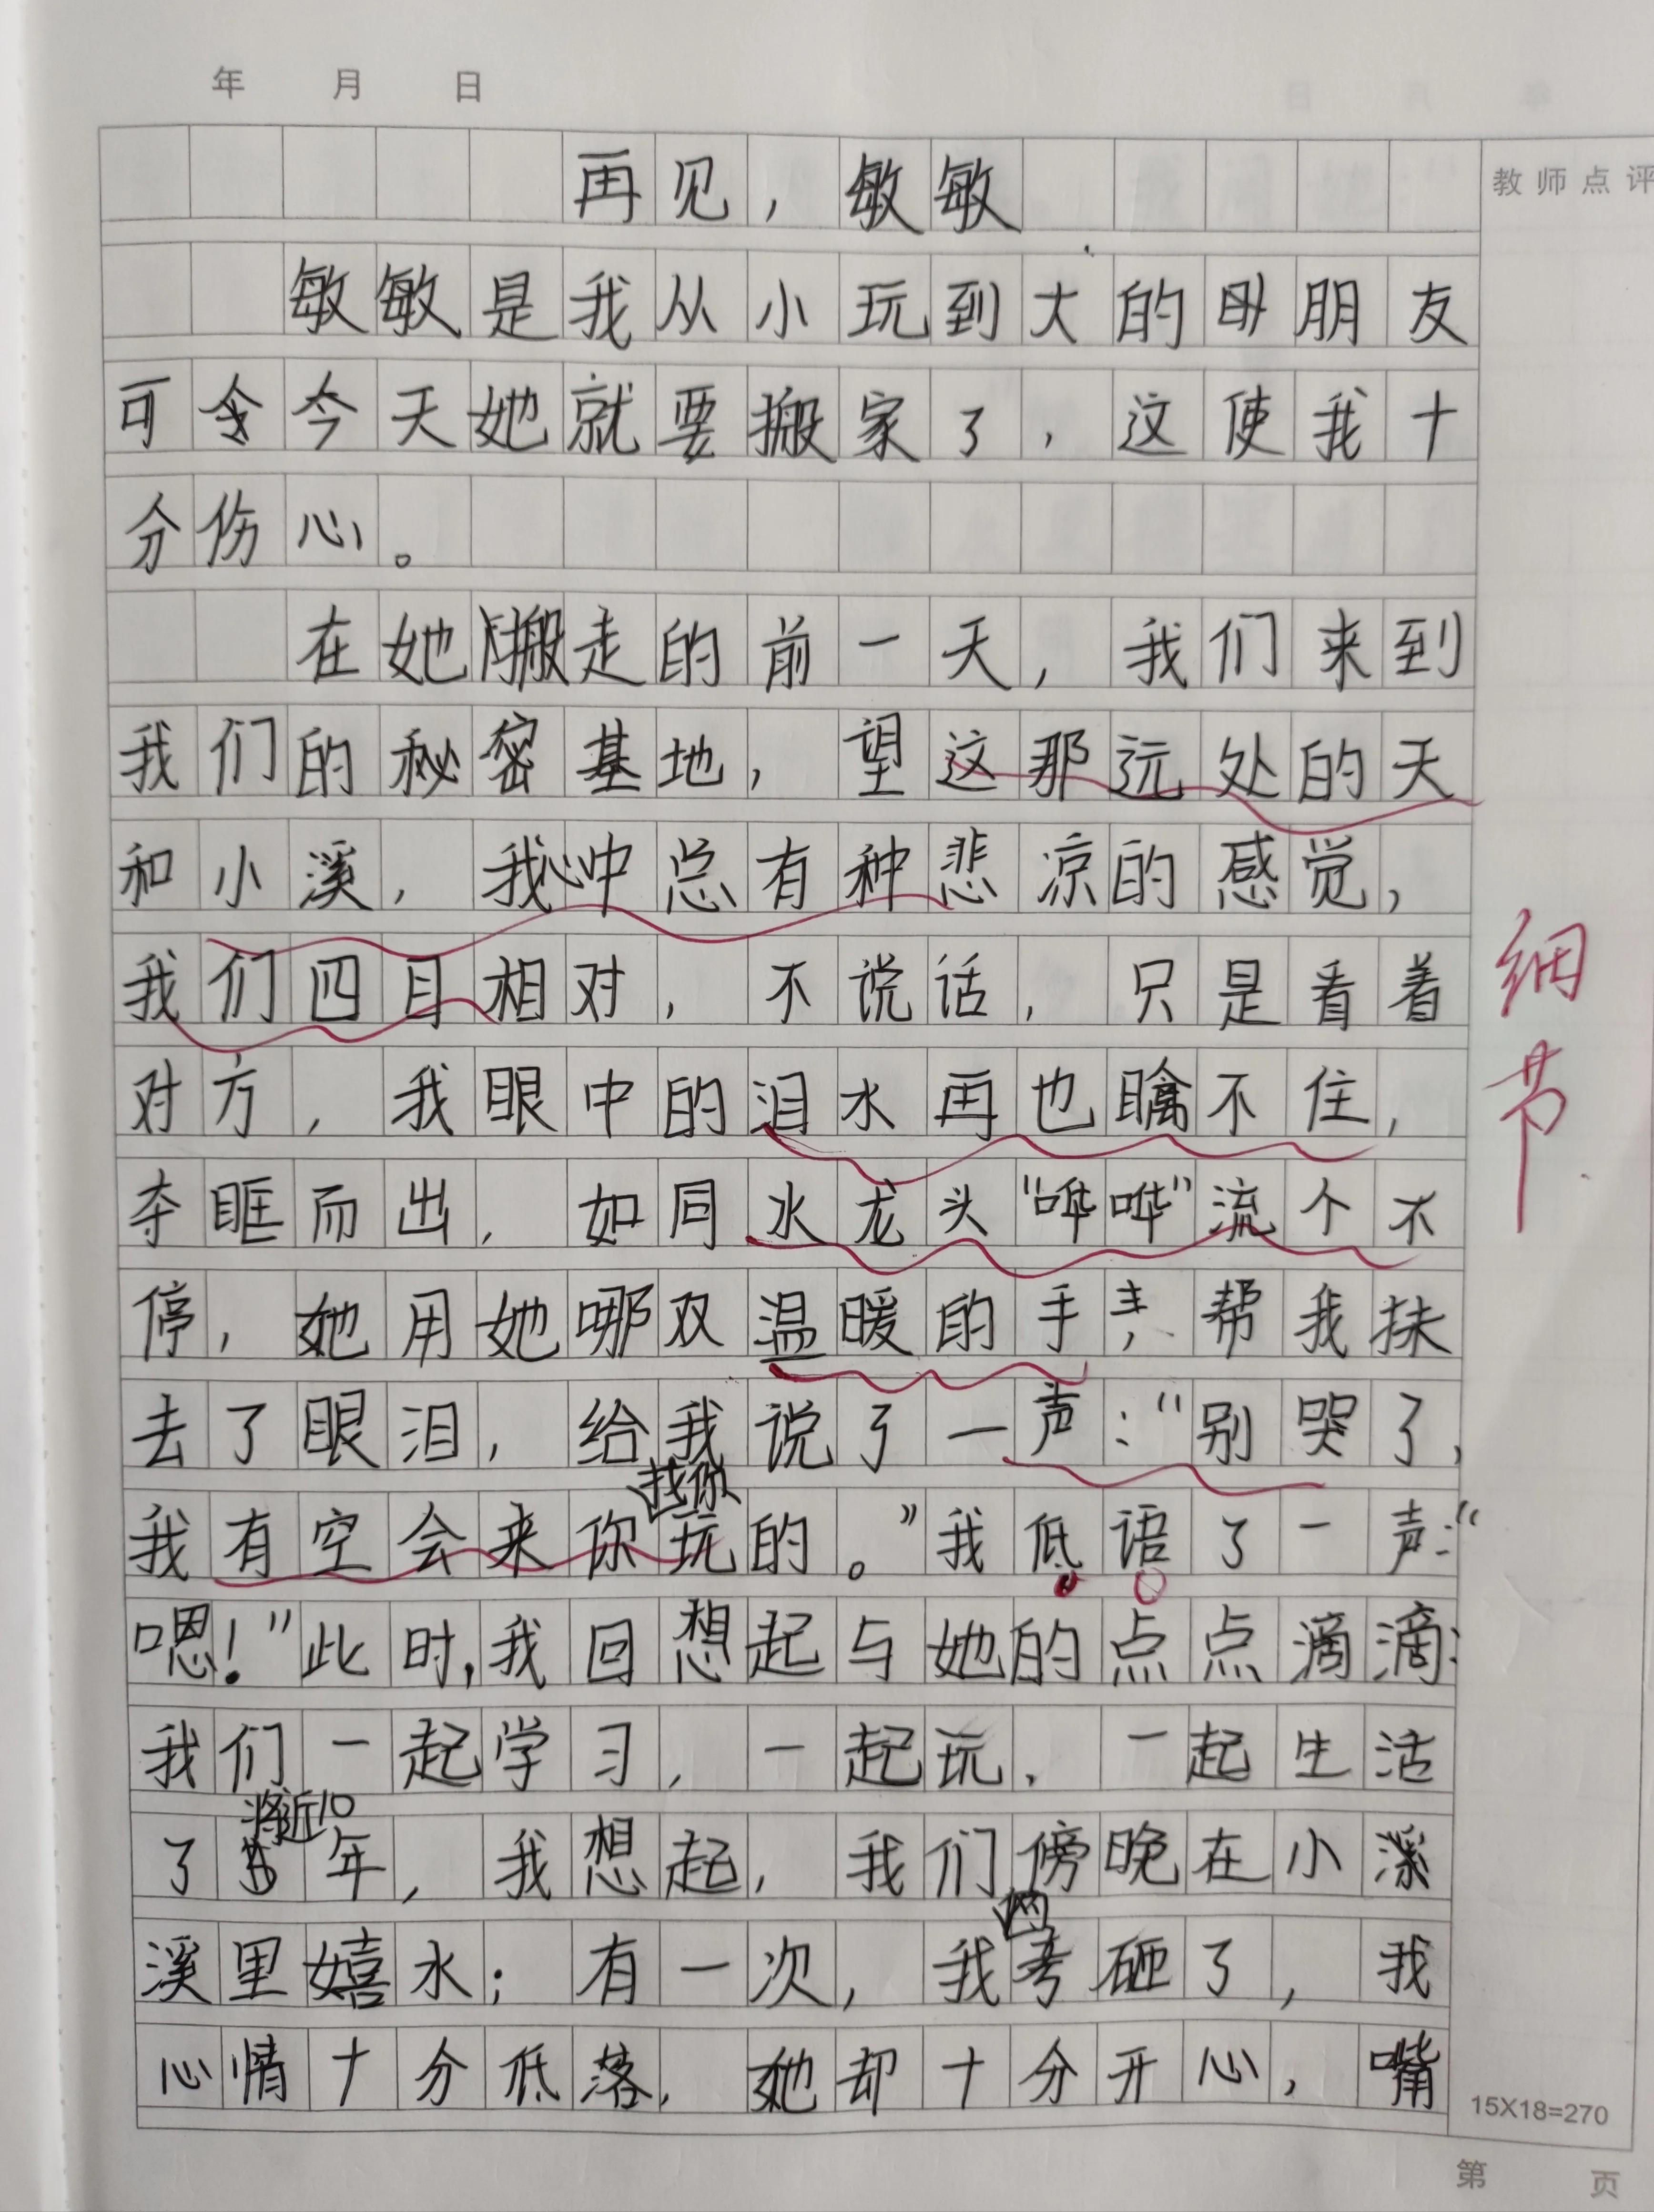 年 月 日
再见，敏敏
教师点评
敏敏是我从小玩到大的朋友
可今天她就要搬家了，这使我十
分伤心。
在她搬走的前一天，我们来到
我们的秘密基地，望这那远处的天
和小溪，我心中总有种悲凉的感觉，
我们四目相对，不说话，只是看着
对方，我眼中的泪水再也噙不住，
夺眶而出，如同水龙头“哗哗”流个不
停，她用她哪双温暖的手，帮我抹
去了眼泪，给我说了一声：“别哭了，
我有空会来找你玩的。”我低语了一声：“
嗯！”此时，我回想起与她的点点滴滴：
我们一起学习，一起玩，一起生活
了将近10年，我想起，我们傍晚在小溪
溪里嬉水；有一次，我考砸了，我
心情十分低落，她却十分开心，嘴
细节
15X18=270
第 页